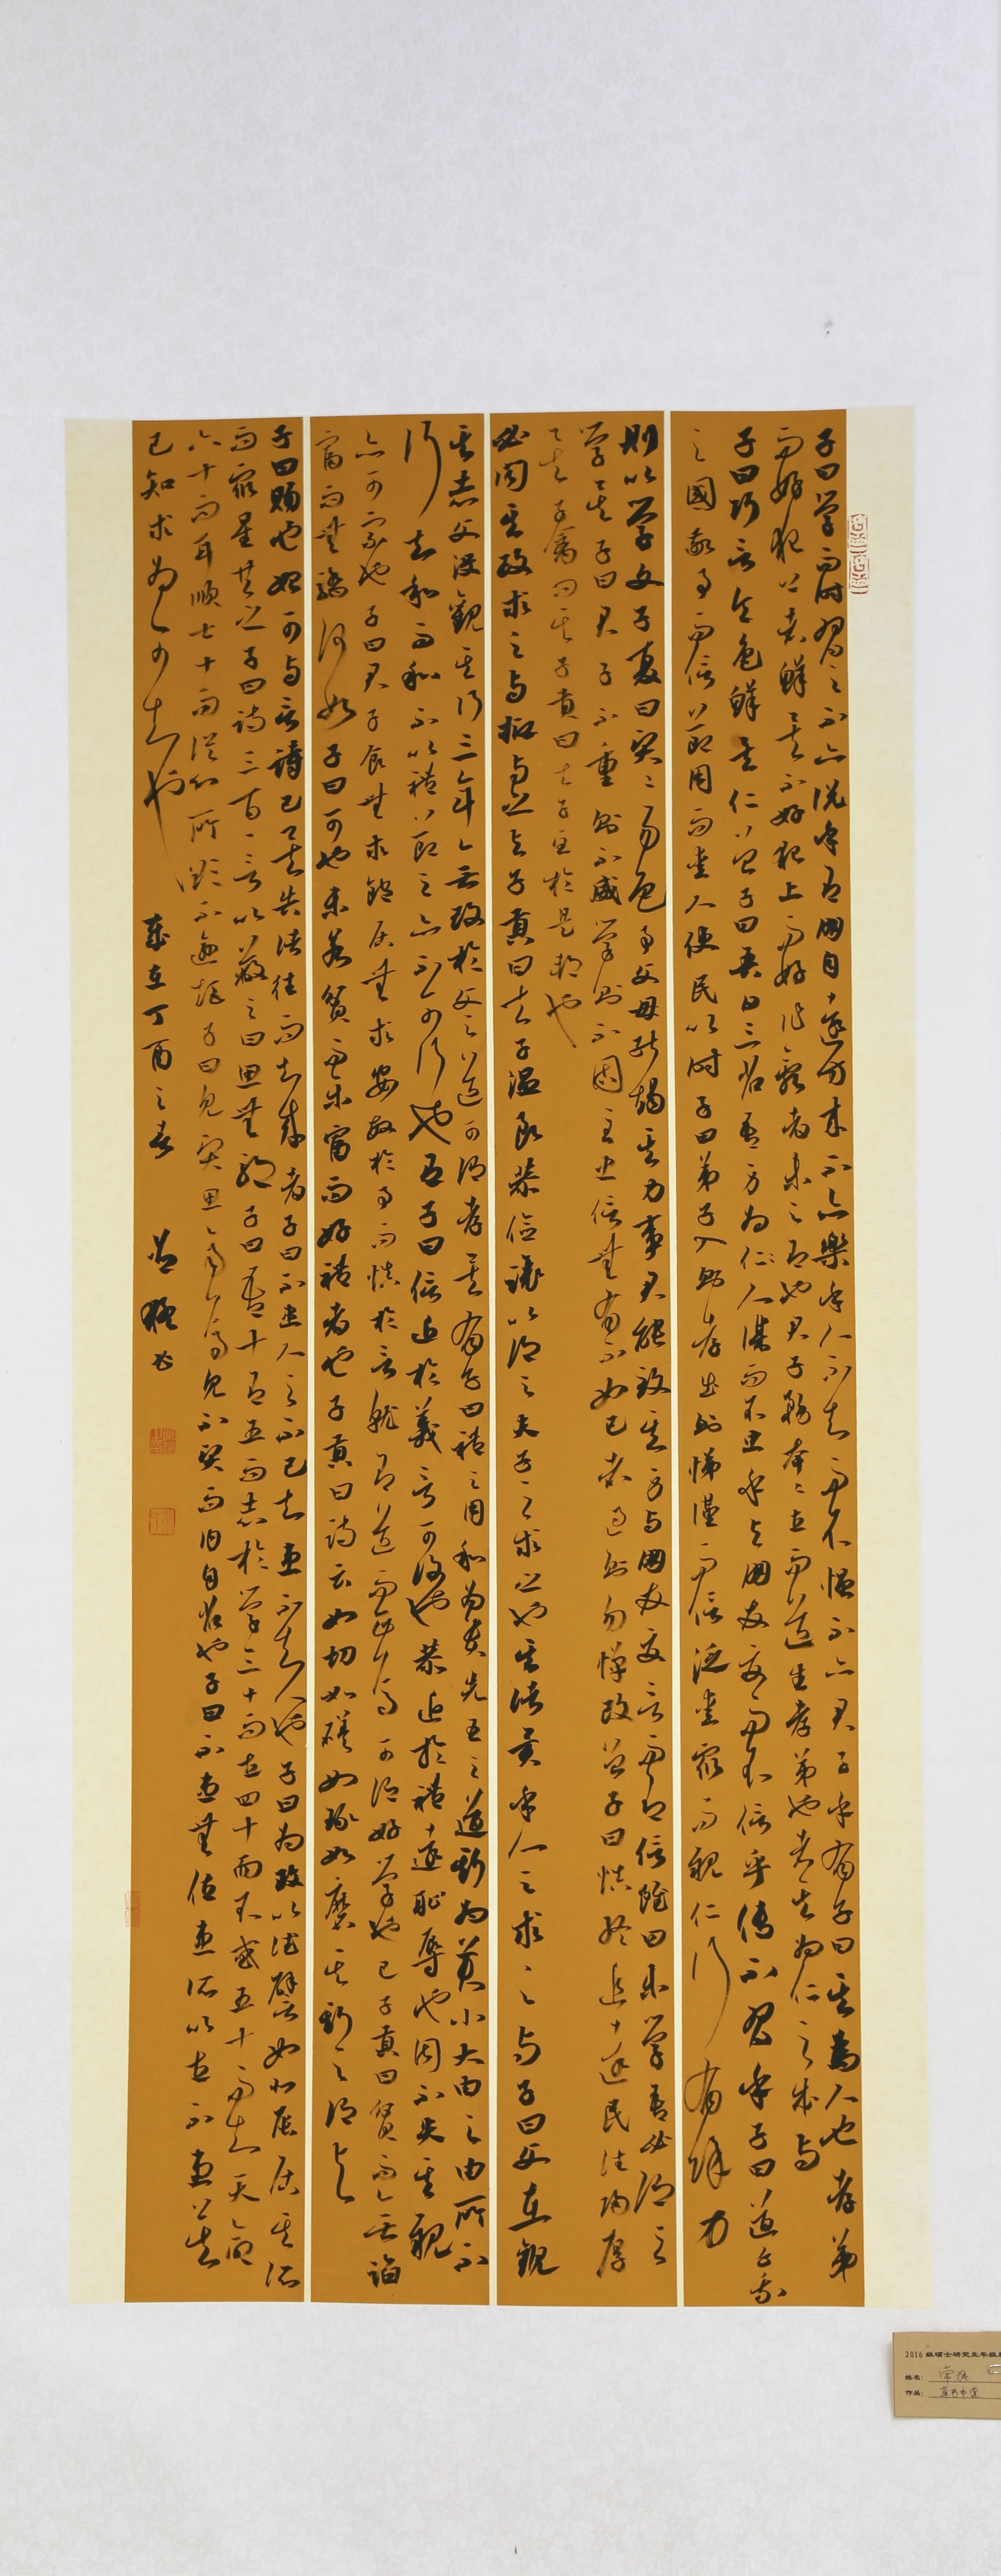 子曰學而時習之不亦說乎有朋自遠方來不亦樂乎人不知而不慍不亦君子乎有子曰其為人也孝弟
而好犯上者鮮矣不好犯上而好作亂者未之有也君子務本本立而道生孝弟也者其為仁之本與
子曰巧言令色鮮矣仁曾子曰吾日三省吾身為人謀而不忠乎與朋友交而不信乎傳不習乎子曰道千乘
之國敬事而信節用而愛人使民以時子曰弟子入則孝出則悌謹而信泛愛眾而親仁行有餘力
則以學文子夏曰賢賢易色事父母能竭其力事君能致其身與朋友交言而有信雖曰未學吾必謂之
學矣子曰君子不重則不威學則不固主忠信無友不如己者過則勿憚改曾子曰慎終追遠民德歸厚
矣子禽問於子貢曰夫子至於是邦也
必聞其政求之與抑與之與子貢曰夫子溫良恭儉讓以得之夫子之求之也其諸異乎人之求之與子曰父在觀
其志父沒觀其行三年無改於父之道可謂孝矣有子曰禮之用和為貴先王之道斯為美小大由之有所不
行知和而和不以禮節之亦不可行也有子曰信近於義言可復也恭近於禮遠恥辱也因不失其親
亦可宗也子曰君子食無求飽居無求安敏於事而慎於言就有道而正焉可謂好學也已子貢曰貧而無諂
富而無驕何如子曰可也未若貧而樂富而好禮者也子貢曰詩云如切如磋如琢如磨其斯之謂與
子曰賜也始可與言詩已矣告諸往而知來者子曰不患人之不己知患不知人也子曰為政以德譬如北辰居其所
而眾星共之子曰詩三百一言以蔽之曰思無邪子曰吾十有五而志於學三十而立四十而不惑五十而知天命
六十而耳順七十而從心所欲不逾矩子曰見賢思齊焉見不賢而內自省也子曰不患無位患所以立不患莫
己知求為可知也 歲在丁酉之春 書
2016级硕士研究生年级
姓名：常
作品：草书中堂